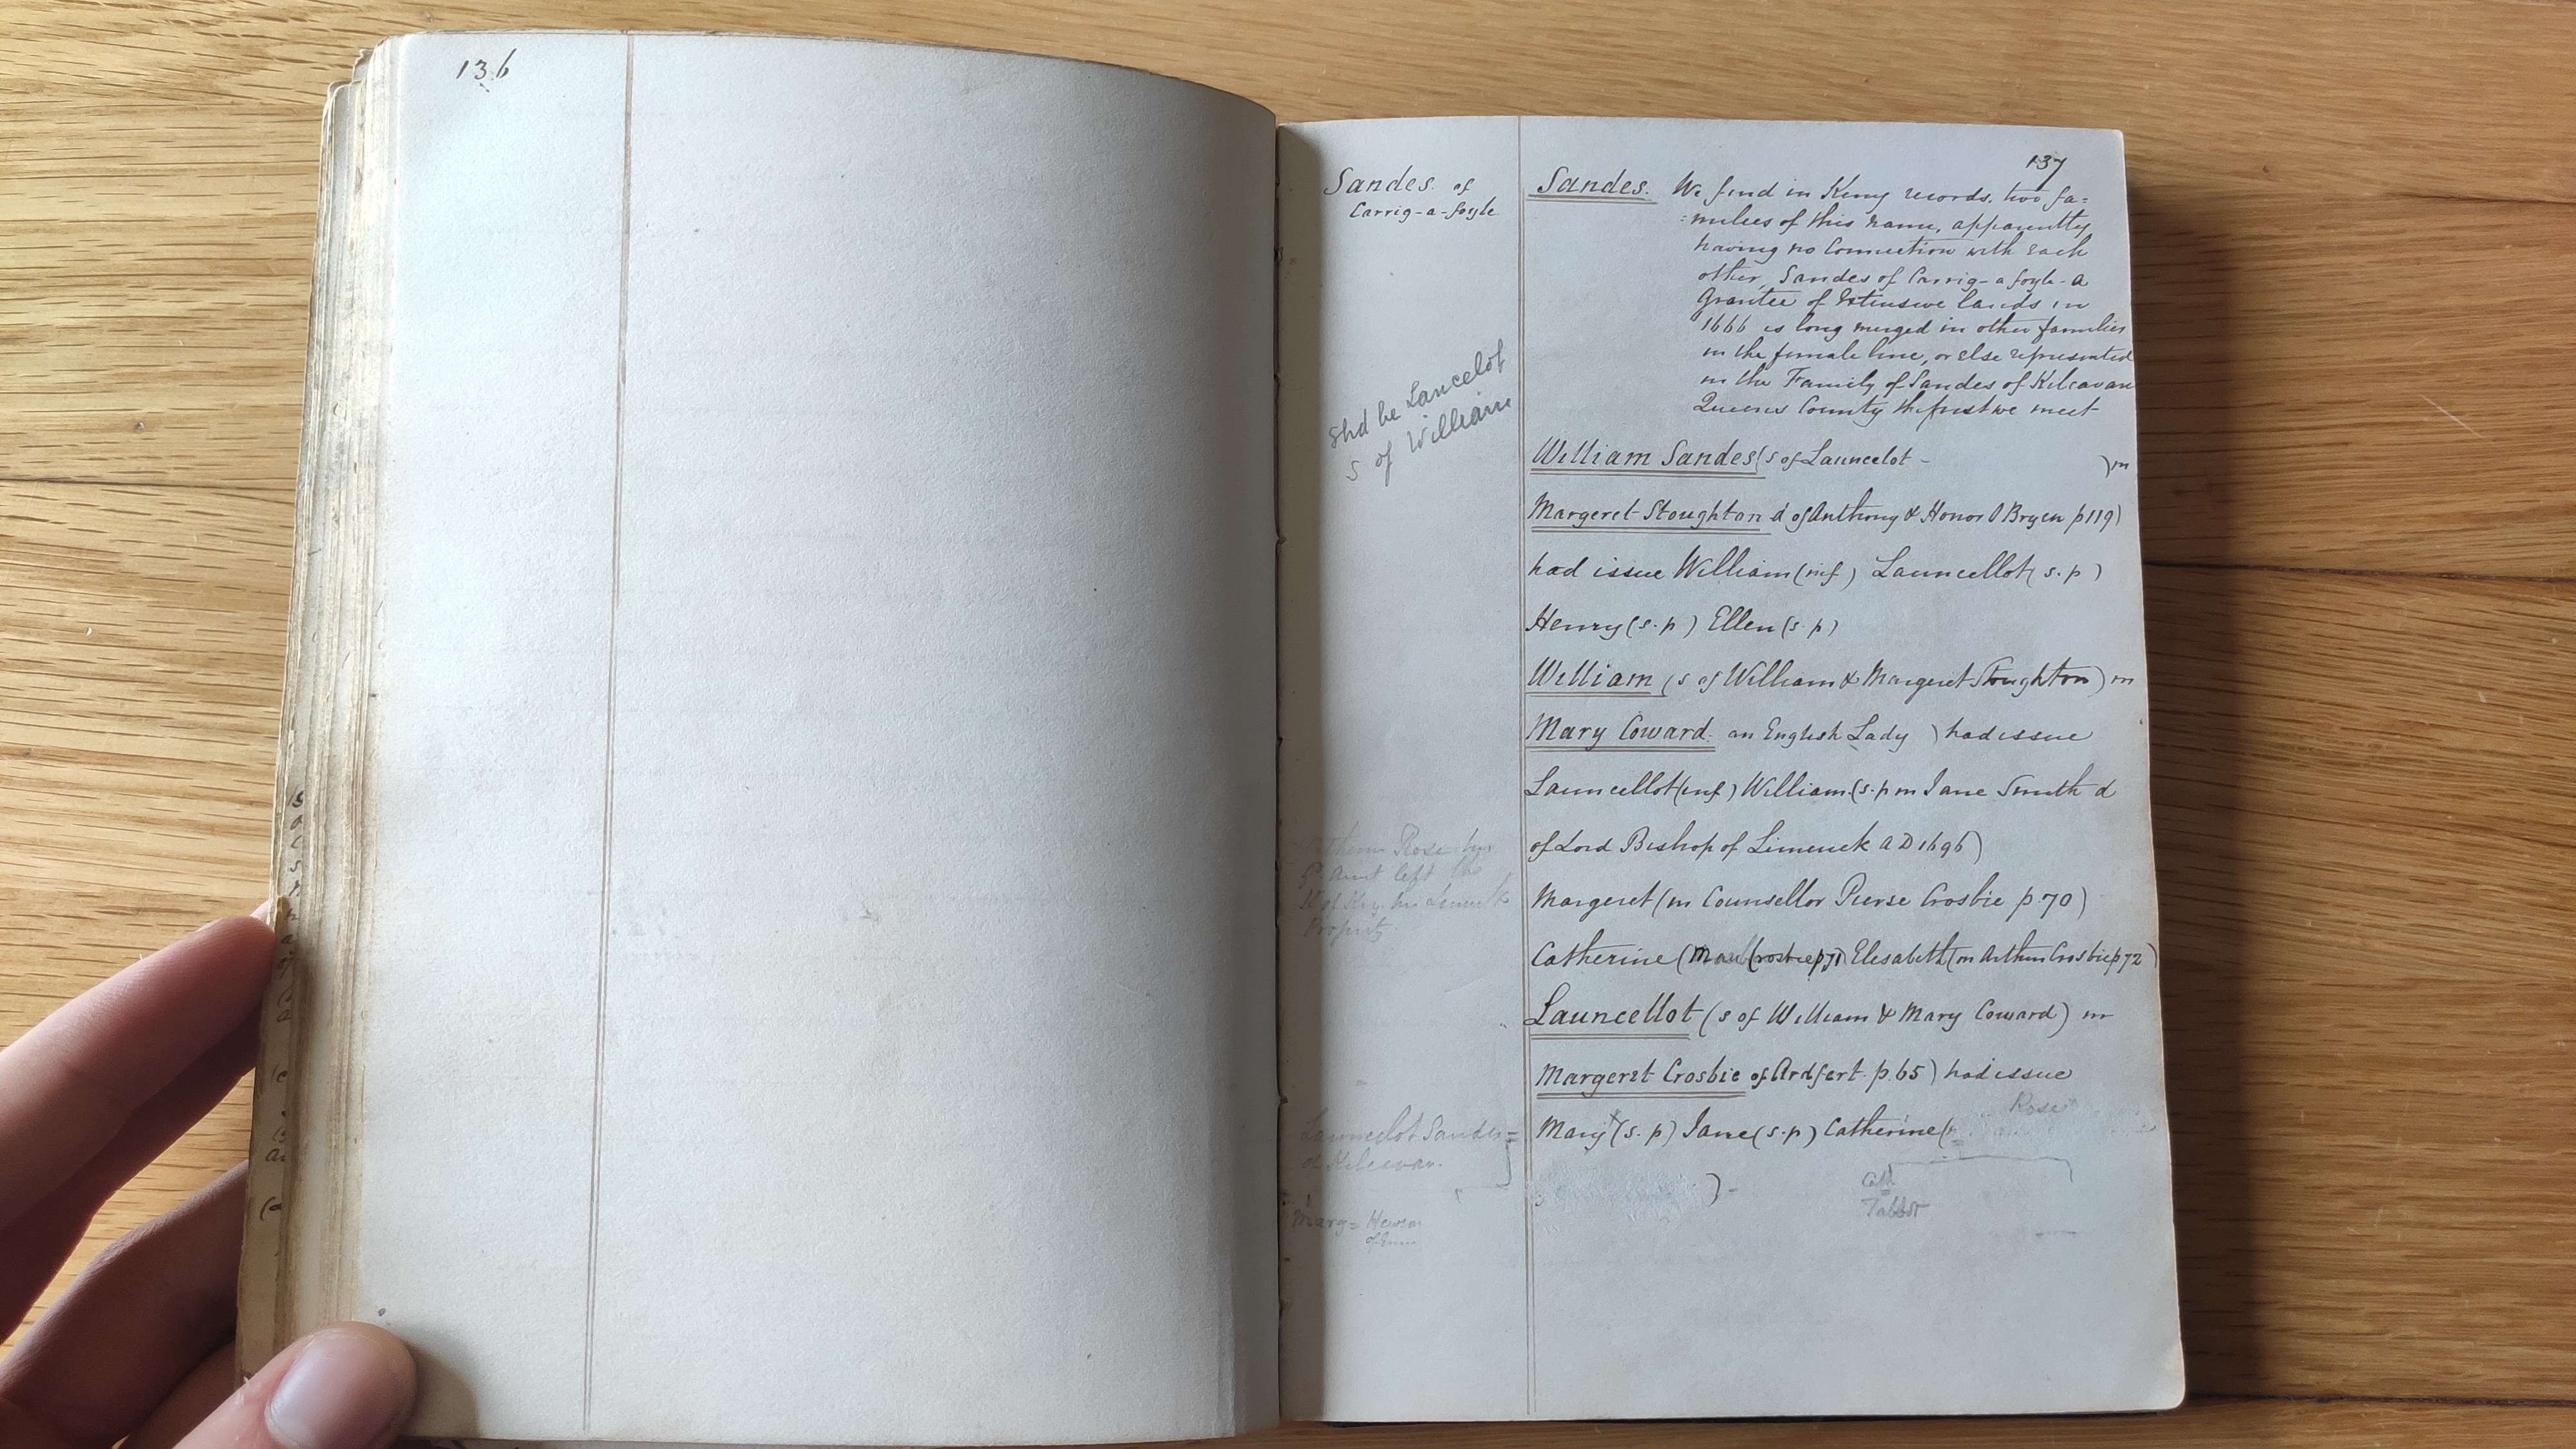 136
137
Sandes of
Carrig-a-foyle
Sandes. We find in Kerry records, two fa=
:milies of this name, apparently
having no Connection with each
other, Sandes of Carrig-a foyle - a
Grantee of Extensive lands in
1666 is long merged in other families
in the female line, or else represented
in the Family of Sandes of Kilcavan
Queens County the first we meet-
Shd be Lancelot
s of William
William Sandes (s of Launcelot - ) m
Margeret Stoughton d of Anthony & Honor O Bryen p 119)
had issue William (inf) Launcellot (s.p)
Henry (s.p) Ellen (s.p)
William (s of William & Margeret Stoughton) m
Mary Coward. an English Lady ) had issue
Launcellot (inf) William (s.p m Jane Smith d
of Lord Bishop of Limerick A D 1696)
Margeret (m Counsellor Pierse Crosbie p. 70)
Catherine (m Crosbie p 71) Elesabeth (m Arthur Crosbie p 72)
Rose
G. Aunt left the
Property
Launcellot (s of William & Mary Coward) m
Margeret Crosbie of Ardfert p. 65) had issue
Rose
Mary (s.p) Jane (s.p) Catherine (
) -
Launcelot Sandes =
of Kilcavan.
Cath
Talbot
Marg =